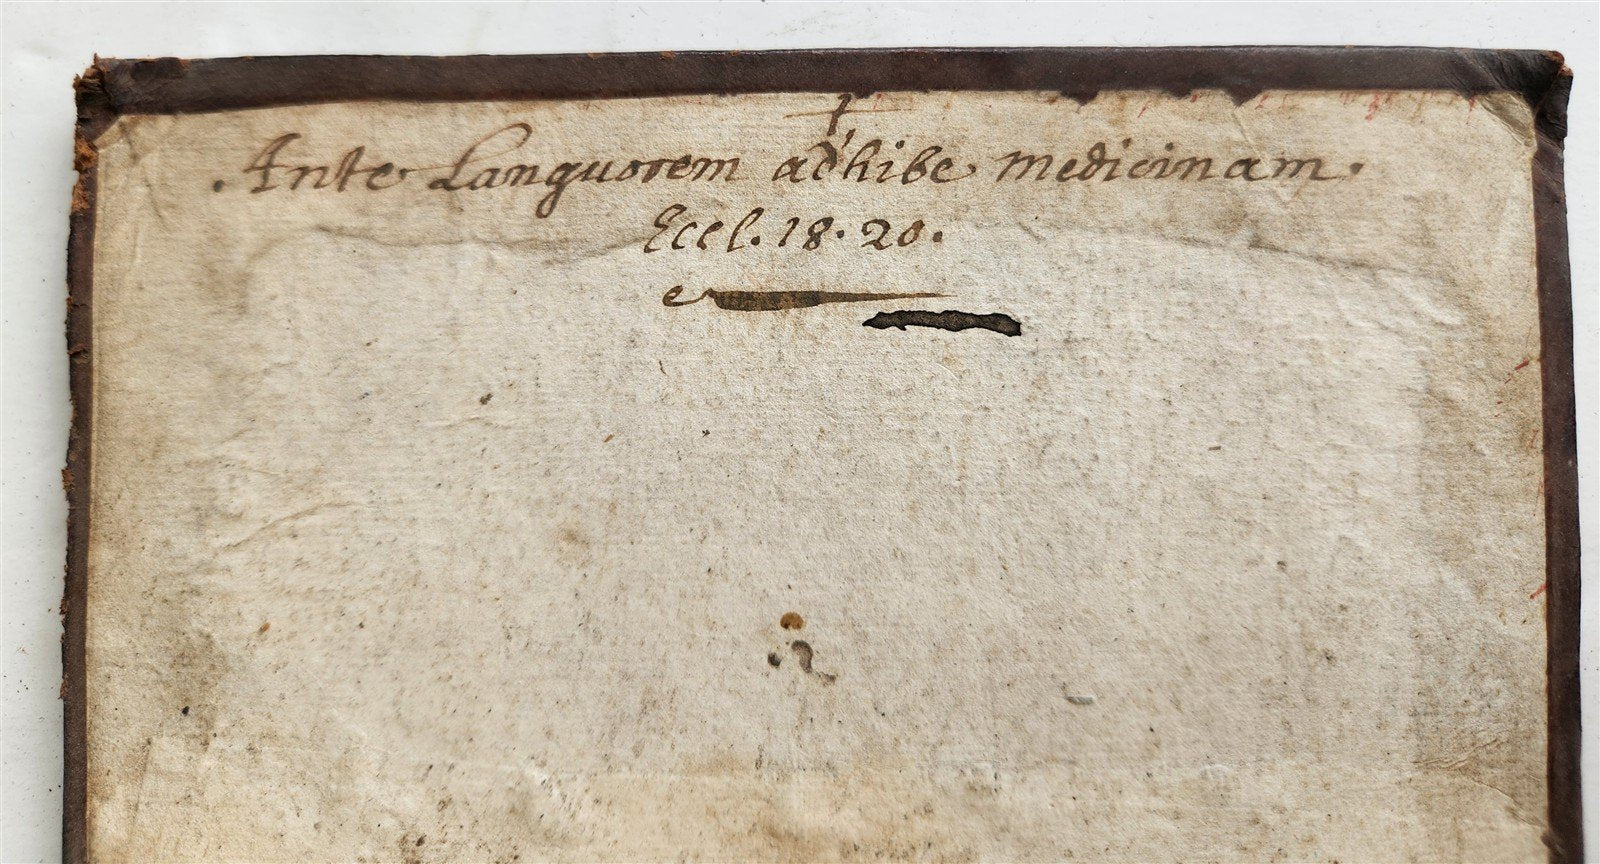 .Ante Languorem adhibe medicinam.
Eccl. 18. 20.